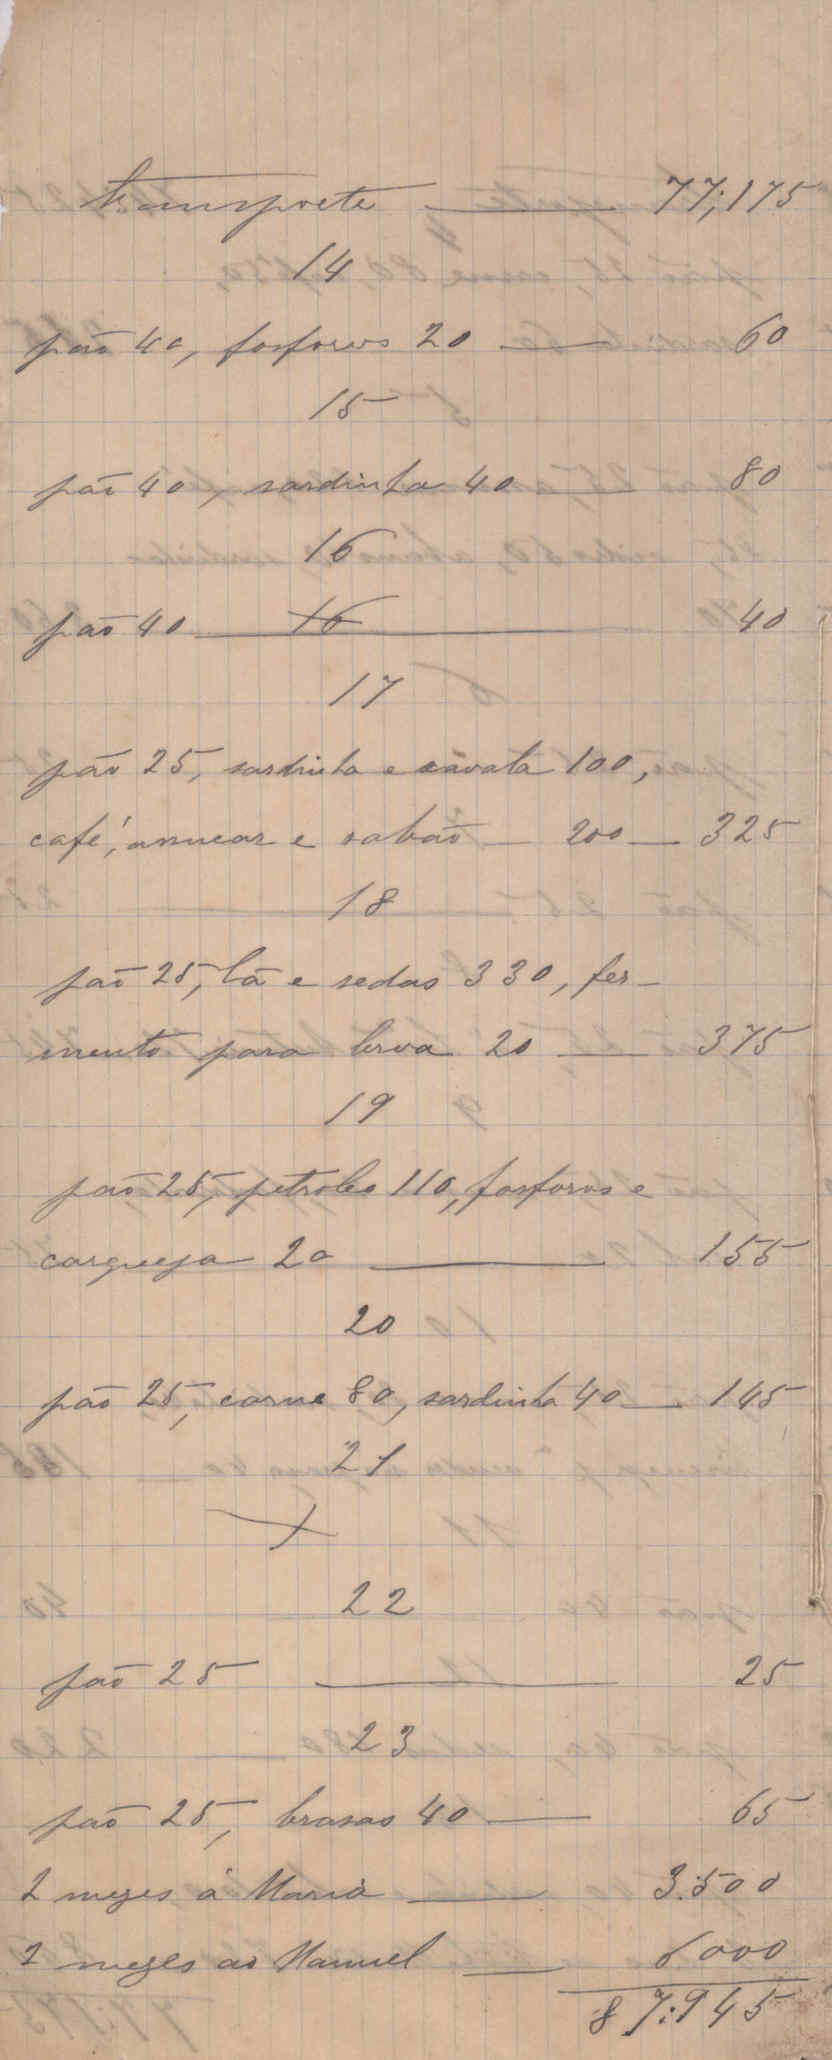 transporte 77;175
14
pão 40, fosforos 20 60
15
pão 40, sardinha 40 80
16
pão 40 16 40
17
pão 25, sardinha e cavala 100,
café, assucar e sabão 200 325
18
pão 25, lã e sedas 330, fer-
mento para broa 20 375
19
pão 25, petroleo 110, fosforos e
carqueja 20 155
20
pão 25, carne 80, sardinha 40 145
21
22
pão 25 25
23
pão 25, brasas 40 65
2 mezes á Maria 3:500
2 mezes ao Manuel 6000
87:945